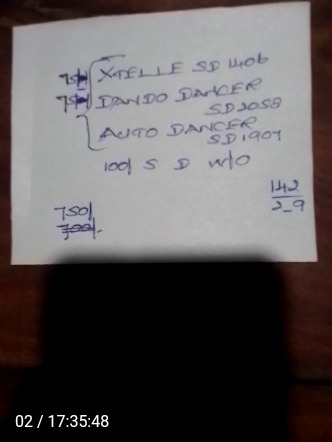 75/- XTELLE SD 1406
75/- DANDO DANCER
SD2058
AUTO DANCER
SD1907
100/ S D W/O
142
2-9
750/
700/-
02 / 17:35:48